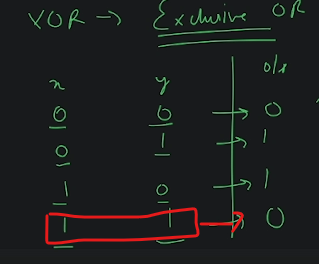 XOR → Exclusive OR
x y o/p
0 0 → 0
0 1 → 1
1 0 → 1
1 1 → 0